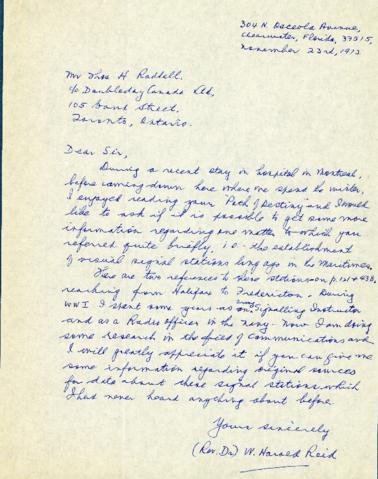 304 N. Osceola Avenue,
Clearwater, Florida, 33515,
November 23rd, 1973
Mr Thos H. Raddall.
c/o Doubleday Canada Ltd,
105 Bond Street.
Toronto, Ontario.
Dear Sir,
During a recent stay in hospital in Montreal,
before coming down here where we spend the winter,
I enjoyed reading your "Path of Destiny" and I would
like to ask if it is possible to get some more
information regarding one matter to which you
referred quite briefly, i.e. the establishment
of visual signal stations long ago in the Maritimes.
Here are two references to these stations on p.
reaching from Halifax to Fredericton. During
WWI I spent some years as an army Signalling Instructor
and as a Radio officer in the navy. Now I am doing
some research in the field of Communications and
I will greatly appreciate it if you can give me
some information regarding original sources
for data about these signal stations which
I had never heard anything about before.
Yours sincerely
(Rev. Dr.) W. Harold Reid